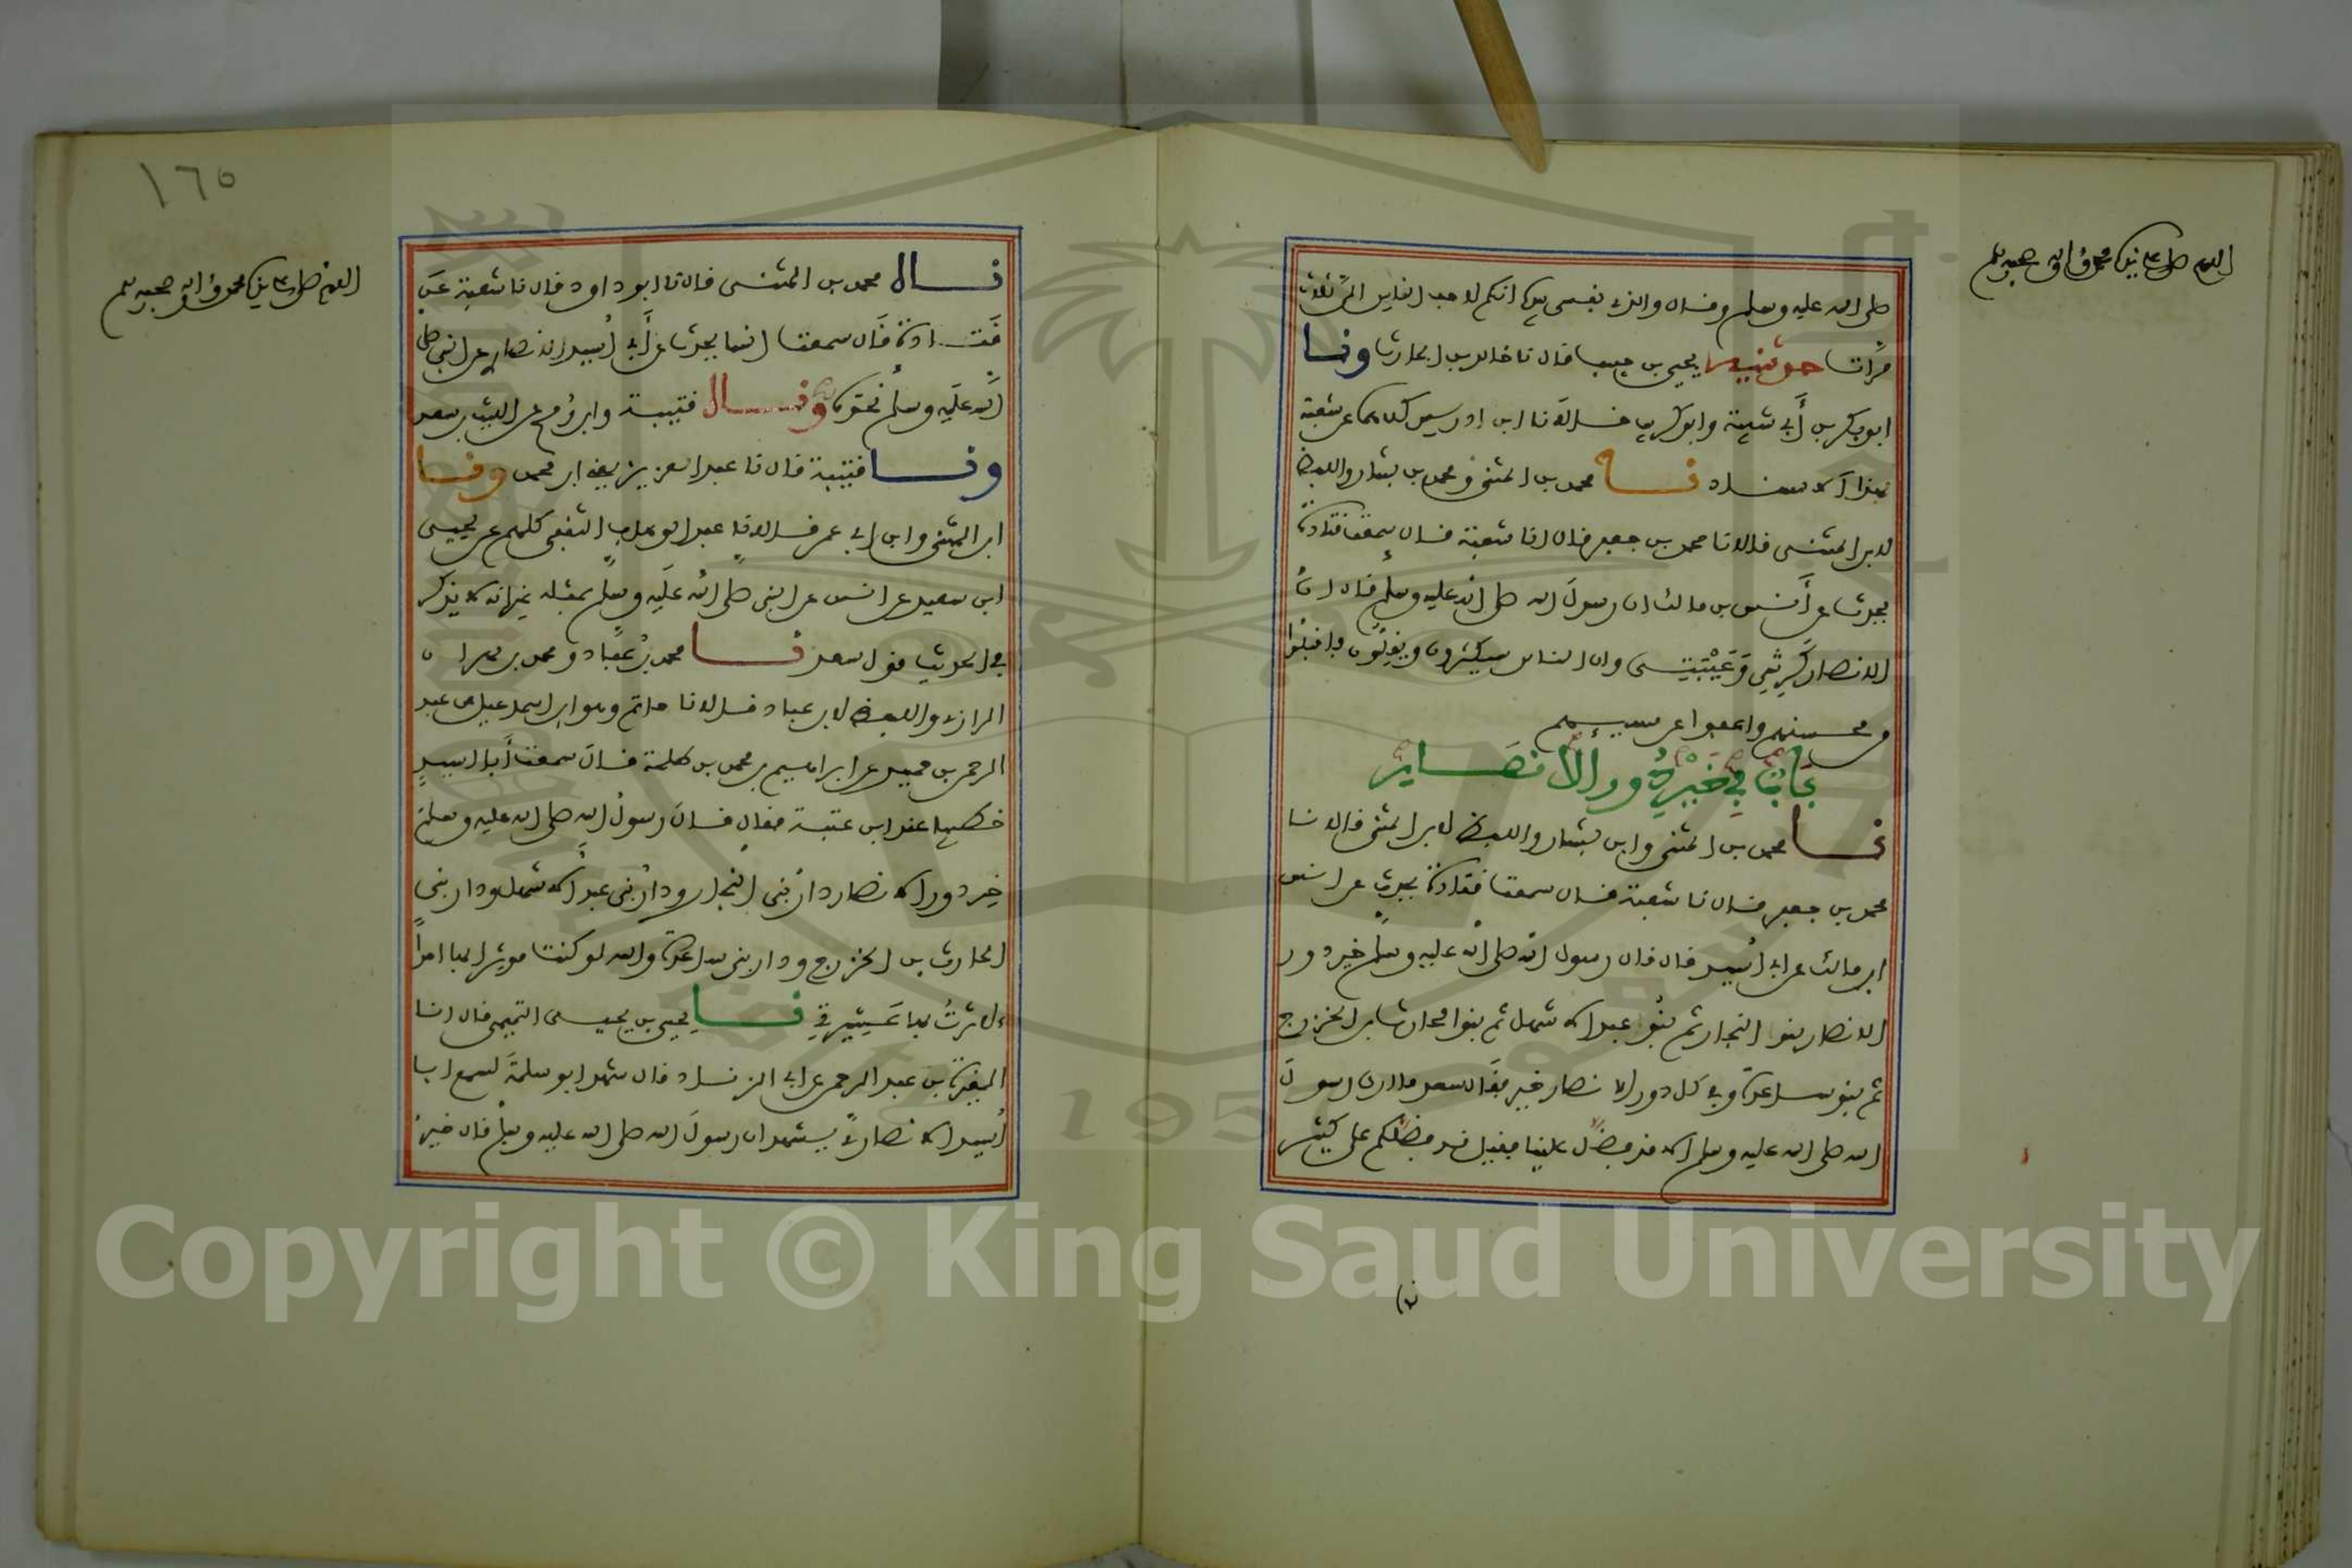 اللهم صل على نبيك محمد وآله وصحبه وسلم
صلى الله عليه وسلم وقال والذي نفسي بيده انكم لاحب الناس الي ثلاث
مرات حدثنيه يحيى بن حبيب قال نا خالد بن الحارث ونا
ابو بكر بن أبي شيبة وابو كريب قالا نا ابن ادريس كلاهما عن شعبة
بهذا الاسناد نا محمد بن المثنى ومحمد بن بشار واللفظ
لابن المثنى قالا نا محمد بن جعفر قال انا شعبة قال سمعت قتادة
يحدث عن أنس بن مالك ان رسول الله صلى الله عليه وسلم قال ان
الانصار كرشي وعيبتي وان الناس سيكثرون ويقلون فاقبلوا
من محسنهم واعفوا عن مسيئهم
باب في خير دور الانصار
نا محمد بن المثنى وابن بشار واللفظ لابن المثنى قالا نا
محمد بن جعفر قال نا شعبة قال سمعت قتادة يحدث عن انس
ابن مالك عن ابي أسيد قال قال رسول الله صلى الله عليه وسلم خير دور
الانصار بنو النجار ثم بنو عبد الاشهل ثم بنو الحارث بن الخزرج
ثم بنو ساعدة وفي كل دور الانصار خير فقال سعد ما ارى رسول
الله صلى الله عليه وسلم الا قد فضل علينا فقيل قد فضلكم على كثير
١٦٥
اللهم صل على نبيك محمد وآله وصحبه وسلم
نا محمد بن المثنى قال نا ابو داود قال نا شعبة عن
قتادة قال سمعت انسا يحدث عن أبي أسيد الانصاري عن النبي صلى
الله عليه وسلم نحوه ونا قتيبة وابن رمح عن الليث بن سعد
ونا قتيبة قال نا عبد العزيز يعني ابن محمد ونا
ابن المثنى وابن ابي عمر قالا نا عبد الوهاب الثقفي كلهم عن يحيى
ابن سعيد عن انس عن النبي صلى الله عليه وسلم بمثله غير انه لا يذكر
في الحديث قول سعد نا محمد بن عباد ومحمد بن مهران
الرازي واللفظ لابن عباد قالا نا حاتم وهو ابن اسمعيل عن عبد
الرحمن بن حميد عن ابراهيم بن محمد بن طلحة قال سمعت أبا اسيد
خطيبا عند ابن عتبة فقال قال رسول الله صلى الله عليه وسلم
خير دور الانصار دار بني النجار ودار بني عبد الاشهل ودار بني
الحارث بن الخزرج ودار بني ساعدة والله لو كنت موثرا بها احدا
لاثرت بها عشيرتي نا يحيى بن يحيى التميمي قال انا
المغيرة بن عبد الرحمن عن ابي الزناد قال شهد ابو سلمة لسمع ابا
أسيد الانصاري يشهد ان رسول الله صلى الله عليه وسلم قال خير
Copyright © King Saud University
1957